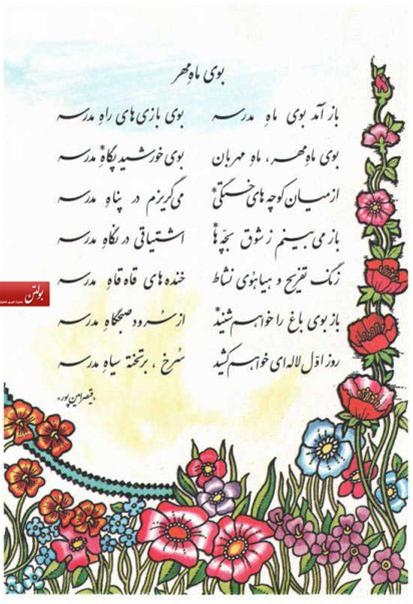 بوی ماهِ مهر
باز آمد بوی ماهِ مدرسه بوی بازی‌های راهِ مدرسه
بوی ماهِ مهر، ماهِ مهربان بوی خورشیدِ پگاهِ* مدرسه
از میان کوچه‌های خستگی* می‌گریزم در پناهِ مدرسه
باز می‌بینم ز شوقِ بچّه‌ها* اشتیاقی در نگاهِ مدرسه
زنگ تفریح و هیاهوی نشاط خنده‌های قاه قاهِ مدرسه
باز بوی باغ را خواهم شنید* از سرودِ صبحگاهِ مدرسه
روز اوّل لاله‌ای خواهم کشید سُرخ، بر تختهٔ سیاهِ مدرسه
«قیصر امین‌پور»
بولتن